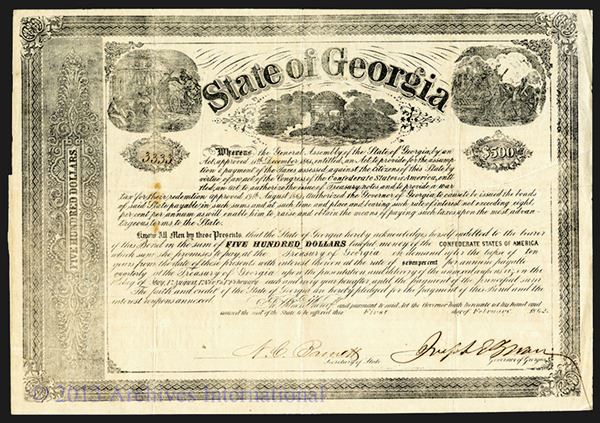 State of Georgia
3333
$500
FIVE HUNDRED DOLLARS
Whereas the General Assembly of the State of Georgia, by an
Act, approved 11th December 1861, entitled, an Act, to provide for the assump-
tion & payment of the taxes assessed against the citizens of this State by
virtue of an act of the Congress of the Confederate States in America, enti-
tled, an act to authorize the issue of Treasury notes and to provide a war
tax for their redemption approved 19th August 1861, authorized the Governor of Georgia to cause to be issued the bonds
of said State payable in such sums and at such time and place and bearing such rate of interest not exceeding eight
per cent per annum as will enable him to raise and obtain the means of paying such taxes upon the most advan-
tageous terms to the State.
Know All Men by these Presents that the State of Georgia hereby acknowledges herself indebted to the bearer
of this Bond in the sum of FIVE HUNDRED DOLLARS lawful money of the CONFEDERATE STATES OF AMERICA
which sum she promises to pay at the Treasury of Georgia on demand after the lapse of ten
years from the date of these presents, with interest thereon at the rate of seven per cent per annum payable
quarterly at the Treasury of Georgia upon the presentation and delivery of the annexed coupons
each and every year hereafter until the payment of the principal sum
The faith and credit of the State of Georgia are hereby pledged for the payment of this Bond and the
interest coupons annexed
and pursuant to said Act the Governor hath hereunto set his hand and
caused the seal of the State to be affixed this First day of February 1862.
Secretary of State
Governor of Georgia
© 2013 Archives International